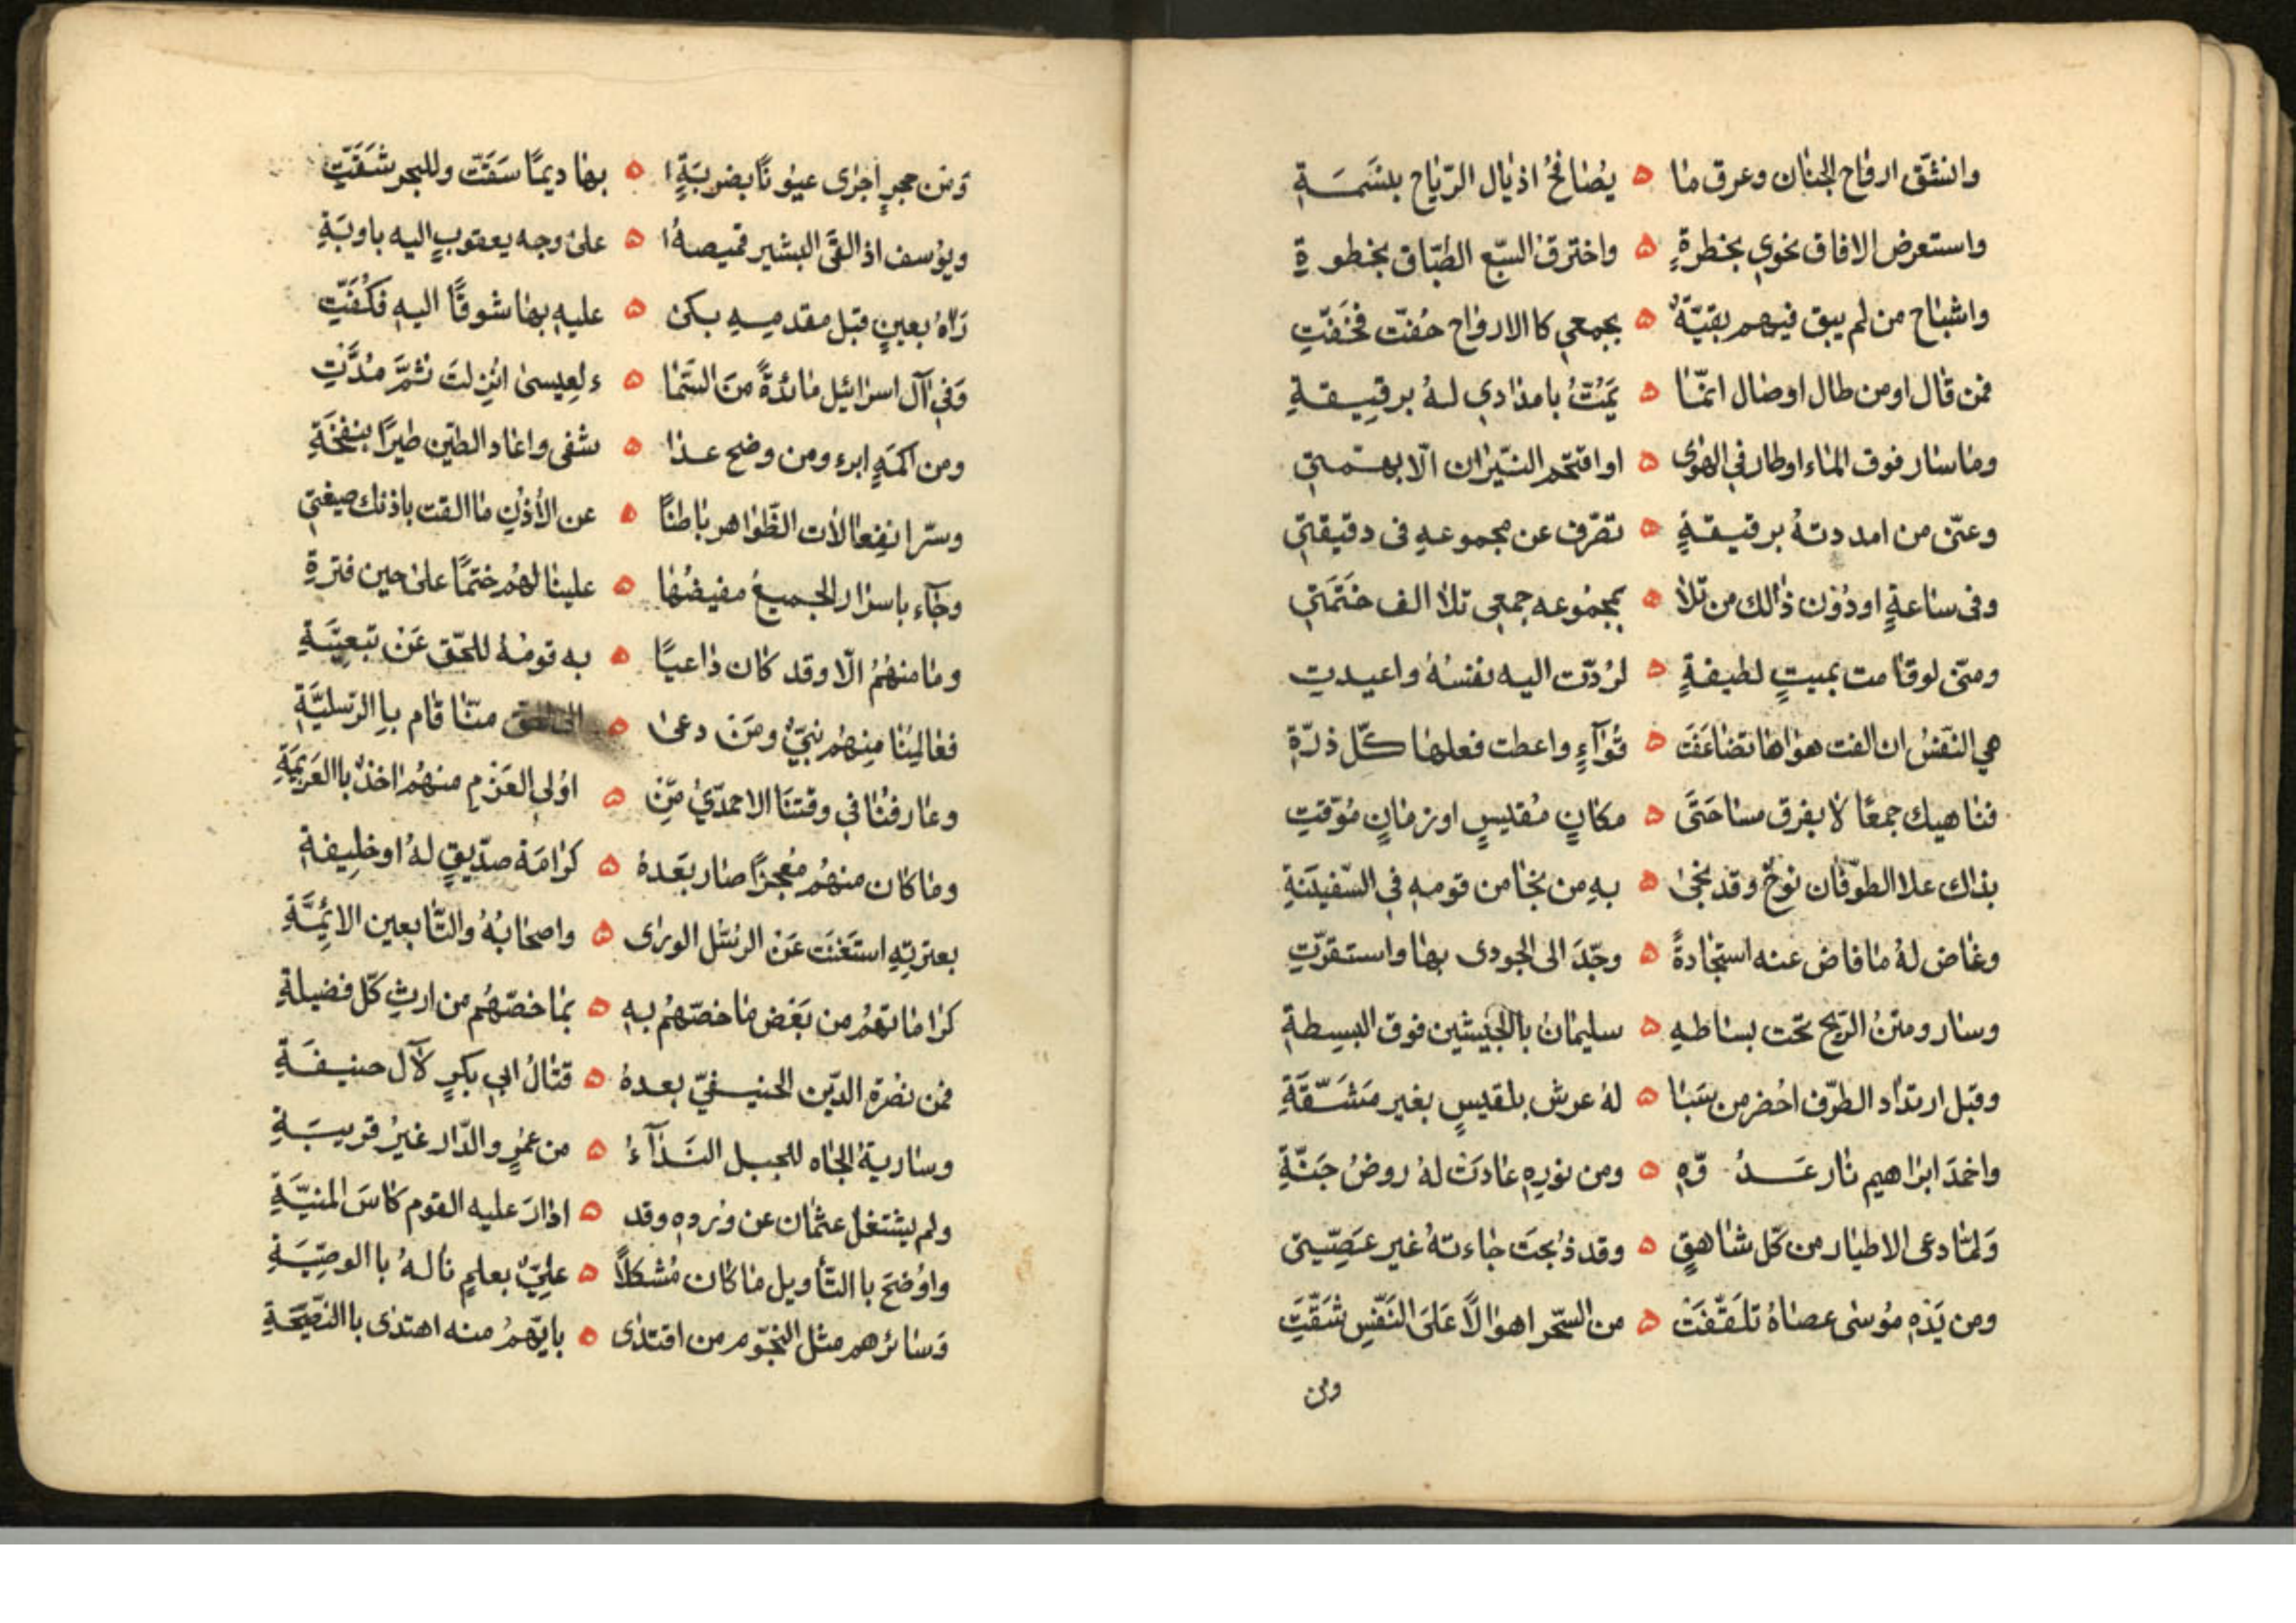 وانشق ارواح الجنان وعرق ما ه يُصافحُ اذيال الرّياح بنسَمَـةِ
واستعرض الافاق نحوي بخطرةٍ ه واخترق السّبع الطّباق بخطوةِ
واشباح من لم يبق فيهم بقيّةٌ ه بجمعي كا الارواح حُفتّ فخَفّتِ
فمن قال اومن طال اوصال انّمنا ه يَمُتُّ بامدادي لـهُ برقيـقـةِ
وما سار فوق الماء اوطار في الهوى ه اواقتحم النّيران الّا بهـمّـتي
وعنّى من امددتهُ برقيـقـةٍ ه تصّرف عن مجموعهِ فى دقيقتي
وفى ساعةٍ اودُوُن ذالك من تلا ه بمجموعه جمعي تلا الف خَتمَتي
ومنّى لوقامت بميتٍ لطيفةٍ ه لرُدّت اليه نفسُهُ واعيدتِ
هي النّفسُ ان القت هواها تضاعَفَت ه قُوآءٍ واعطت فعلها كّل ذرّةِ
فناهيك جمعًا لا بفرق مساحَتَى ه مكانٍ مقليسٍ اوزمانٍ مُوّقتِ
بذاك علا الطوّفان نوحٌ وقد نجى ه بهِ من نجا من قومهِ في السّفيَنةِ
وغاض لهُ ما فاض عنه استجادةً ه وجّدَ الى الجودى بها واستقرّتِ
وسار ومتنُ الرّيح تحت بساطهِ ه سليمانُ باالجيشين فوق البسِطةِ
وقبل ارتدُاد الطرّف احُضر من سَبا ه لهُ عرش بلقيسٍ بغير مَشَـقّـةِ
واخمَدَ ابراهيم نار عَــدُ وّهِ ه ومن نورهِ عادَتْ لهُ روضُ جَنّةِ
وَلمّا دعى الاطيار من كّل شاهقٍ ه وقد ذُبحَت جاءتهُ غير عَصِّـيتى
ومن يَدَهِ موُسى عصاهُ تلقّفَتْ ه من السّحر اهوالًا عَلىَ النَفّسِ شَقّتِ
ومن
وَمن حجرٍ اجرٰى عيوُنًا بضربَةٍ ا ه بها ديمًا سَقَتّ وللبحر شَقّتِ
ويوُسف اذ القَى البشير قميصهُ ا ه على وجه يعقوبٍ اليه باوبَةِ
رَاهُ بعينٍ قبل مقدميـهِ بكى ه عليهِ بها شوقًا اليهِ فكُفّتِ
وَفي آل اسرائيل مائدةً منَ السّمَا ه ءلعِيسىٰ انُزِلتَ ثمَّ مُدَّتِ
ومن اكمَهٍ ابرء ومن وضح عـدا ه شفى واعاد الطيّن طيرًا بنفخَةِ
وسّر انفِعالات الظّواهر باطنًا ه عن الأذنِ ما القت باذنك صيغتي
وجآء باسرار الجميع مفيضُها ه علينا لهُم ختمًا على حين فترةِ
وما منهُمُ الّا وقد كان داعيًا ه به قومهُ للحّق عَنْ تبعيّـةِ
فعالِمُنا مِنهُم نبيٌّ ومَن دعى ه الى الحق منّا قام بـاِ الرّسليّةِ
وعارفُنا في وقتنَا الاحمديُّ مِّن ه اوُلي العَزم منهُمُ اخذٌ باالعَزيمَةِ
وما كان منهُم مُعجزًا صار بعَدهُ ه كرامَة صدّيقٍ لهُ اوخلِيفةِ
بعترتِهِ استَغنَت عَن الرسّل الورى ه واصحابُهُ والتّابعين الايِمَّةِ
كراماتهُم من بَعَض ما خصّهُم بهِ ه بما خصّهُم من ارثِ كّل فضيلةِ
فمن نصُرة الدّين الحنيـفيّ بعدهُ ه قتالُ ابي بكرٍ لآل حنيـفـةِ
وسارية الجاه للجبل النـدآءُ ه من عمرٍ والدّار غيرُ قريـبَـةِ
ولم يشتغلْ عثمان عن وِردهِ وقد ه ادارَ عليه القوم كاسَ المنيّـةِ
واوُضحَ باالتّأويل ما كان مُشكلاً ه علِيٌّ بعلمٍ نالهُ باالوصِيّـةِ
وَسائرُهم مثل النجّوم من اقتدى ه بايّهمُ منه اهتدى باالنّصّيحَةِ